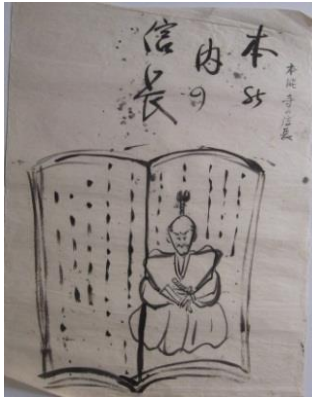 本能寺の信長
本の
内の
信長